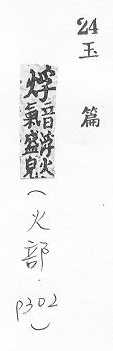 24玉篇
烰音浮火
氣盛皃
(火部·p302)